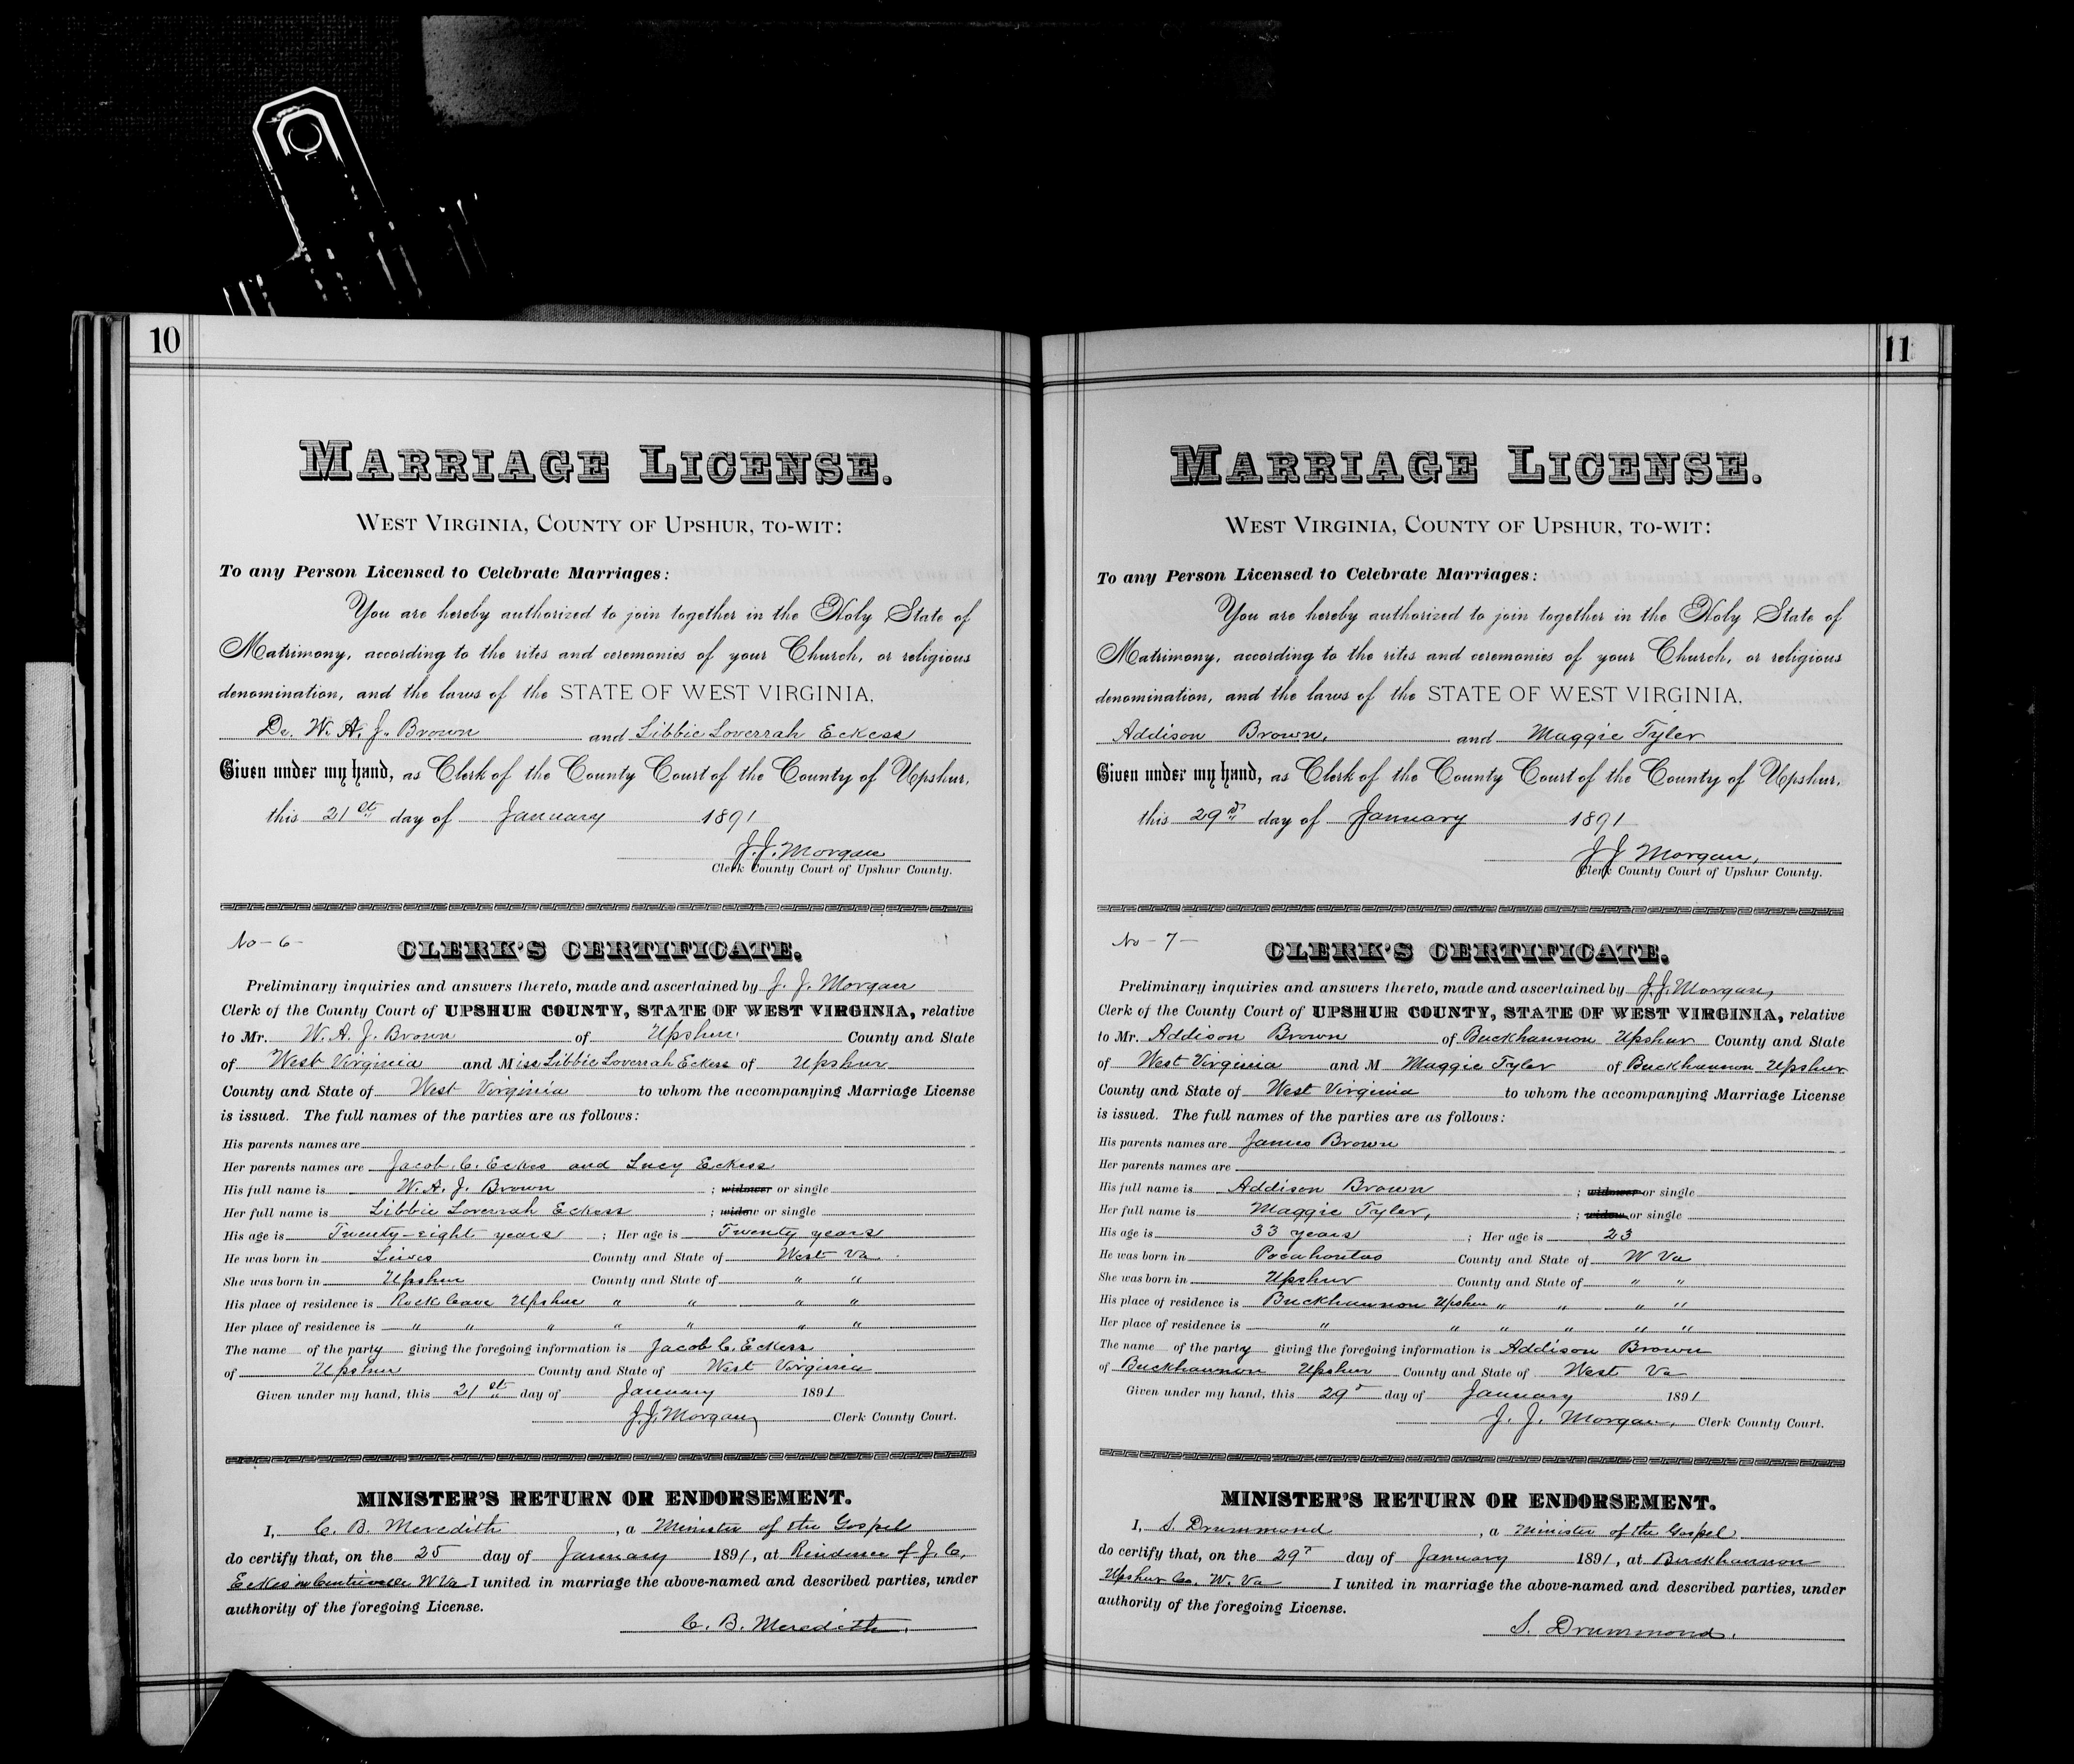 10
MARRIAGE LICENSE.
WEST VIRGINIA, COUNTY OF UPSHUR, TO-WIT:
To any Person Licensed to Celebrate Marriages:
You are hereby authorized to join together in the Holy State of
Matrimony, according to the rites and ceremonies of your Church, or religious
denomination, and the laws of the STATE OF WEST VIRGINIA,
Dr. W. A. J. Brown and Libbie Loverrah Eckess
Given under my hand, as Clerk of the County Court of the County of Upshur,
this 21st day of January 1891
J. J. Morgan
Clerk County Court of Upshur County.
No - 6 -
CLERK'S CERTIFICATE.
Preliminary inquiries and answers thereto, made and ascertained by J. J. Morgan
Clerk of the County Court of UPSHUR COUNTY, STATE OF WEST VIRGINIA, relative
to Mr. W. A. J. Brown of Upshur County and State
of West Virginia and Miss Libbie Loverrah Eckess of Upshur
County and State of West Virginia to whom the accompanying Marriage License
is issued. The full names of the parties are as follows:
His parents names are
Her parents names are Jacob. C. Eckes and Lucy Eckess
His full name is W. A. J. Brown ; widower or single
Her full name is Libbie Loverrah Eckess ; widow or single
His age is Twenty-eight years ; Her age is Twenty years
He was born in Lewis County and State of West Va
She was born in Upshur County and State of " "
His place of residence is Rock Cave Upshur " " " "
Her place of residence is " " " " " " "
The name of the party giving the foregoing information is Jacob C. Eckess
of Upshur County and State of West Virginia
Given under my hand, this 21st day of January 1891
J. J. Morgan, Clerk County Court.
MINISTER'S RETURN OR ENDORSEMENT.
I, C. B. Meredith, a Minister of the Gospel
do certify that, on the 25 day of January 1891, at Residence of J. C.
Eckes in Centreville W Va I united in marriage the above-named and described parties, under
authority of the foregoing License.
C. B. Meredith.
11
MARRIAGE LICENSE.
WEST VIRGINIA, COUNTY OF UPSHUR, TO-WIT:
To any Person Licensed to Celebrate Marriages:
You are hereby authorized to join together in the Holy State of
Matrimony, according to the rites and ceremonies of your Church, or religious
denomination, and the laws of the STATE OF WEST VIRGINIA,
Addison Brown, and Maggie Tyler
Given under my hand, as Clerk of the County Court of the County of Upshur,
this 29th day of January 1891
J J Morgan,
Clerk County Court of Upshur County.
No - 7 -
CLERK'S CERTIFICATE.
Preliminary inquiries and answers thereto, made and ascertained by J. J. Morgan,
Clerk of the County Court of UPSHUR COUNTY, STATE OF WEST VIRGINIA, relative
to Mr. Addison Brown of Buckhannon Upshur County and State
of West Virginia and M Maggie Tyler of Buckhannon Upshur
County and State of West Virginia to whom the accompanying Marriage License
is issued. The full names of the parties are as follows:
His parents names are James Brown
Her parents names are
His full name is Addison Brown ; widower or single
Her full name is Maggie Tyler, ; widow or single
His age is 33 years ; Her age is 23
He was born in Pocahontas County and State of W Va
She was born in Upshur County and State of " "
His place of residence is Buckhannon Upshur " " " "
Her place of residence is " " " " " "
The name of the party giving the foregoing information is Addison Brown
of Buckhannon Upshur County and State of West Va
Given under my hand, this 29th day of January 1891
J. J. Morgan, Clerk County Court.
MINISTER'S RETURN OR ENDORSEMENT.
I, S. Drummond, a Minister of the Gospel
do certify that, on the 29th day of January 1891, at Buckhannon
Upshur Co. W. Va I united in marriage the above-named and described parties, under
authority of the foregoing License.
S. Drummond.